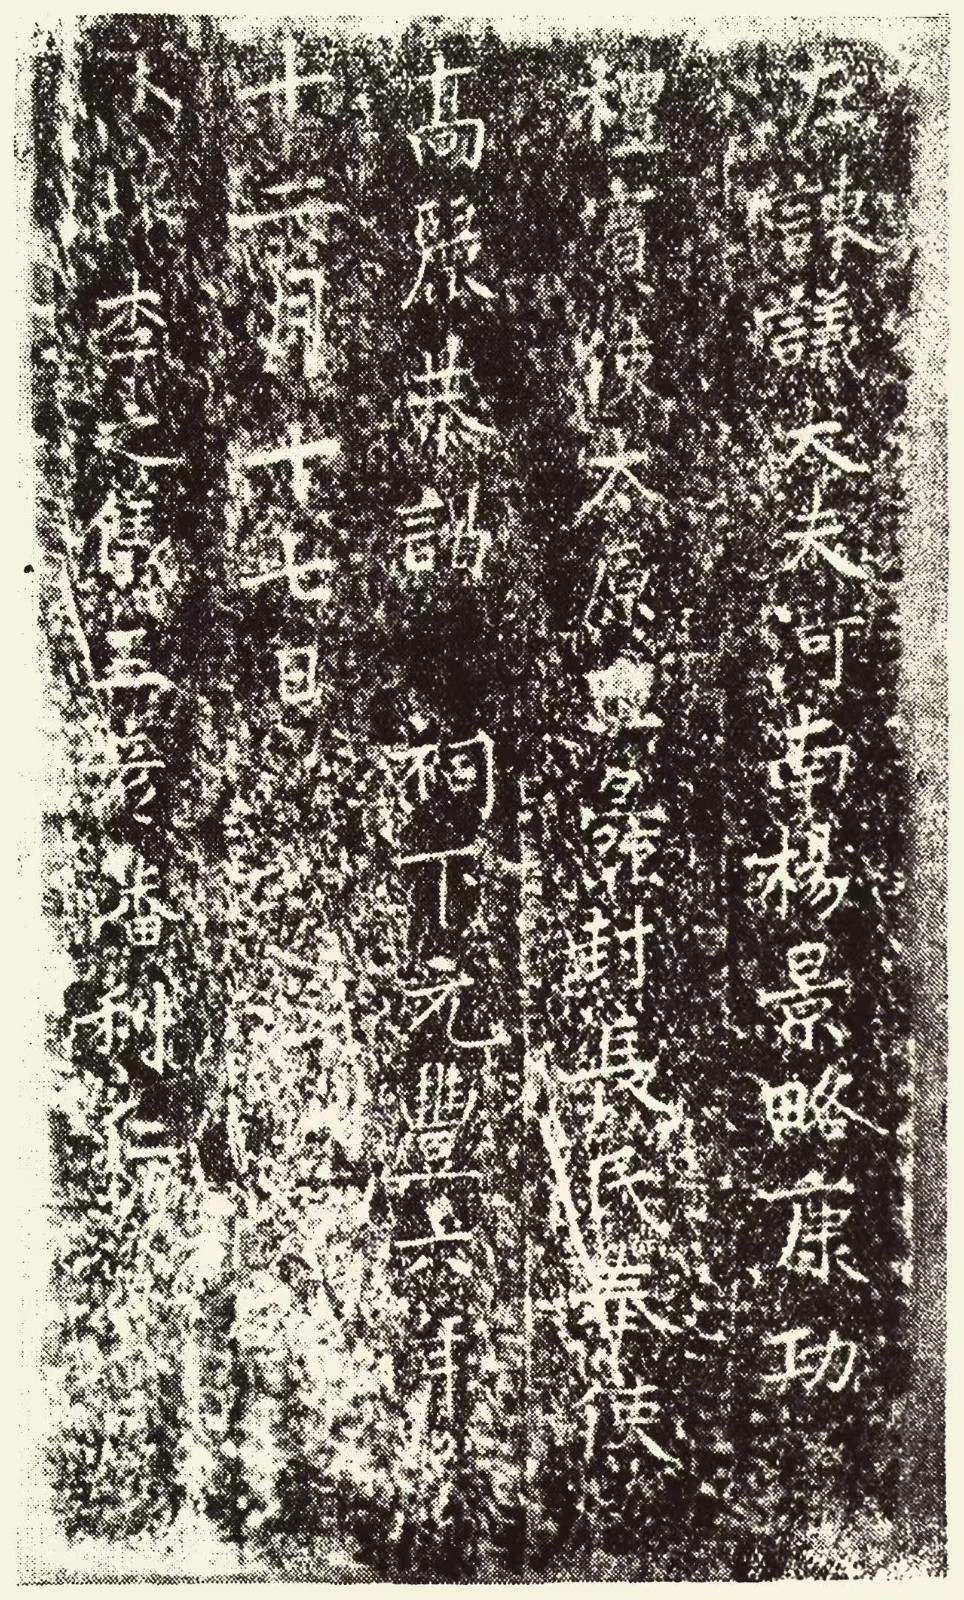 左諫議大夫河南楊景略康功
禮賓使太原王舜封長民奉使
高麗恭詣祠下元豐六年
十二月十七日
李之儀王彥番利仁